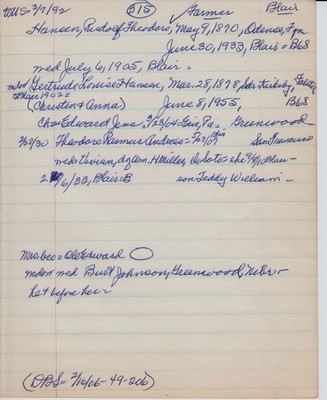 to US = 3/9/92 (315) Farmer Blair
Hansen, Rudolf Theodore, May 9, 1870, Odense, Fyn
June 30, 1933, Blair = B68
wed July 6, 1905, Blair =
Gertrude Louise Hansen, Mar. 28, 1878,
to Blair 1902 =
(Christen & Anna) June 8, 1955, B68
Ch = Edward Jens = 2/23/04 = Greenwood
Theodore Rasmus Andreas = San Francisco
wed = Vivian, dg Wm. H Miller, DeSoto = she Blair -
2 6/33, Blair = B son Teddy William -
Mrs. Geo = Ole Edward
wed Burt Johnson, Greenwood, Nebr -
he + before her =
(DBS = 2/16/06 - 49 - 206)